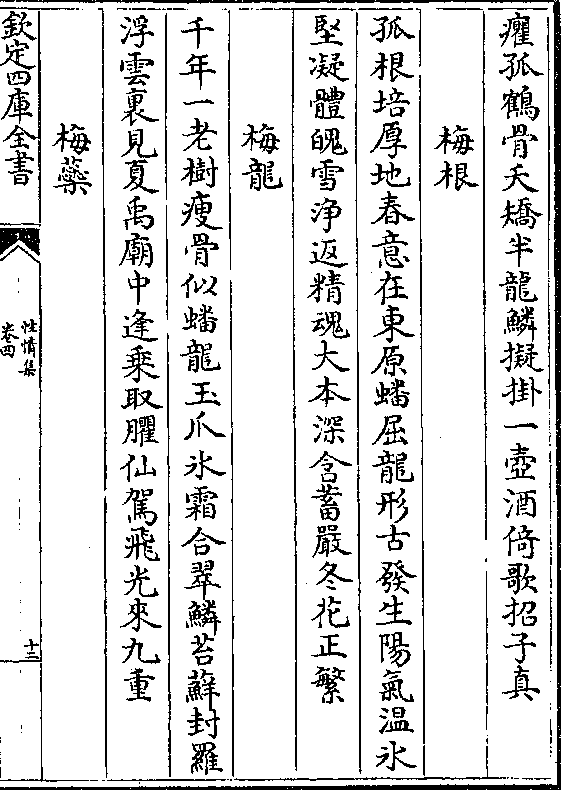 癯孤鶴骨夭矯半龍鱗擬掛一壺酒倚歌招子真
梅根
孤根培厚地春意在東原蟠屈龍形古發生陽氣温氷
堅凝體魄雪浄返精魂大本深含蓄嚴冬花正繁
梅龍
千年一老樹瘦骨似蟠龍玉爪氷霜合翠鱗苔蘚封羅
浮雲裏見夏禹廟中逢乗取臞仙駕飛光來九重
梅蘂
欽定四庫全書
性情集
卷四
十三